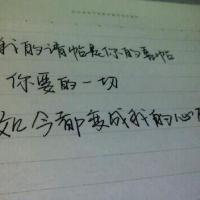 我的请帖是你的喜帖
你要的一切
如今都变成我的心